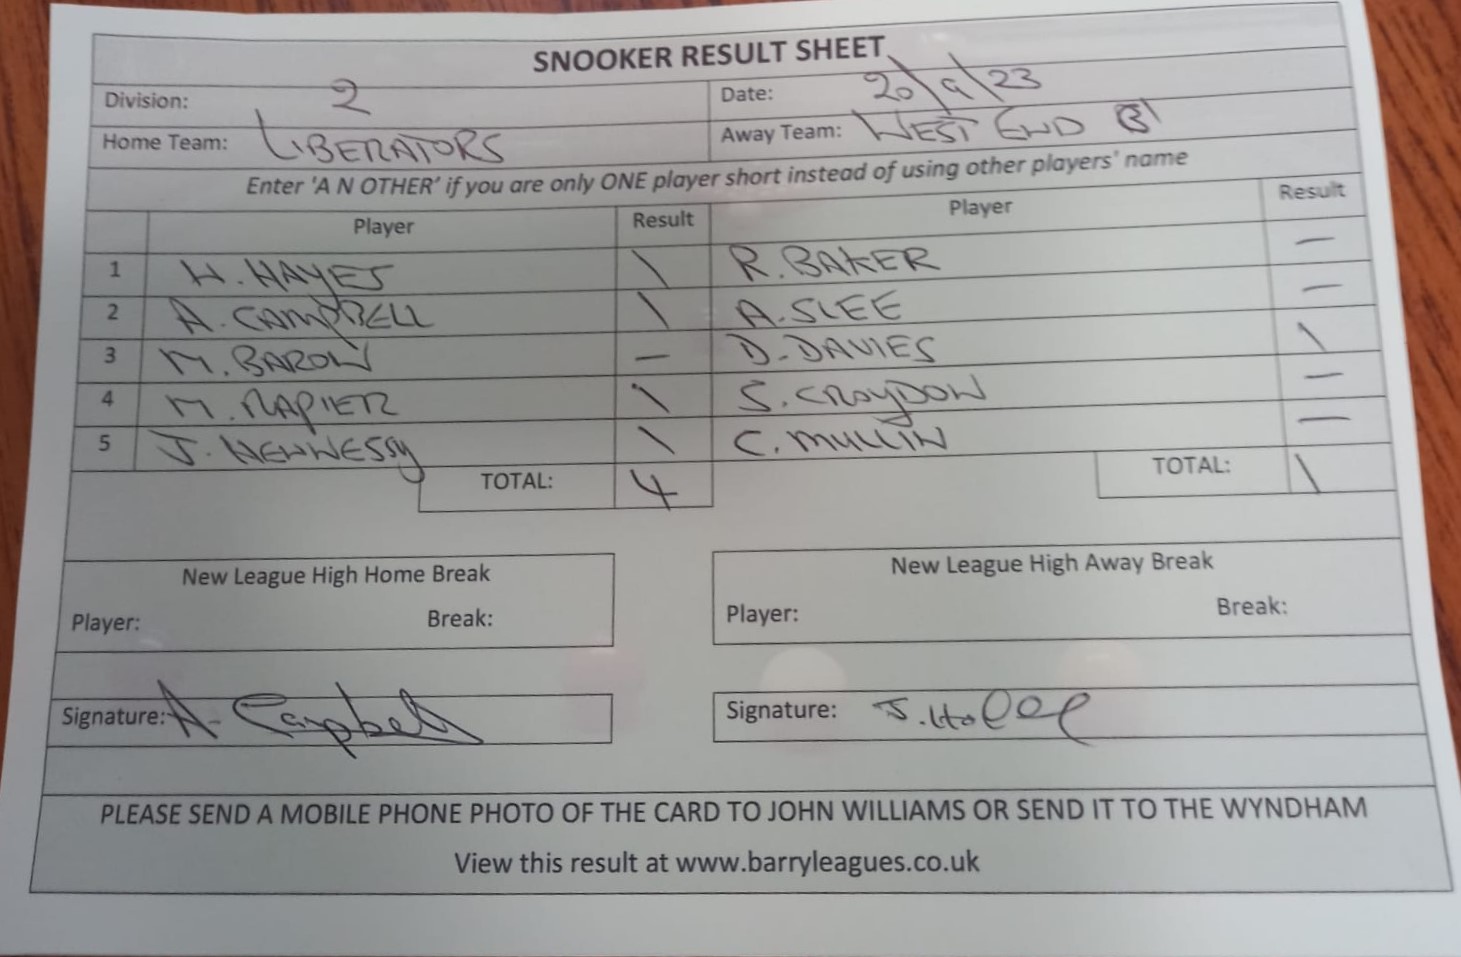 SNOOKER RESULT SHEET
Division: 2 Date: 20/9/23
Home Team: LIBERATORS Away Team: WEST END B
Enter 'A N OTHER' if you are only ONE player short instead of using other players' name
Player Result Player Result
1 H. HAYES \ R. BAKER —
2 A. CAMPBELL \ A. SLEE —
3 M. BARON — D. DAVIES \
4 M. NAPIER \ S. CROYDON —
5 J. HENNESSY \ C. MULLIN —
TOTAL: 4 TOTAL: \
New League High Home Break New League High Away Break
Player: Break: Player: Break:
Signature: A. Campbell Signature:
PLEASE SEND A MOBILE PHONE PHOTO OF THE CARD TO JOHN WILLIAMS OR SEND IT TO THE WYNDHAM
View this result at www.barryleagues.co.uk